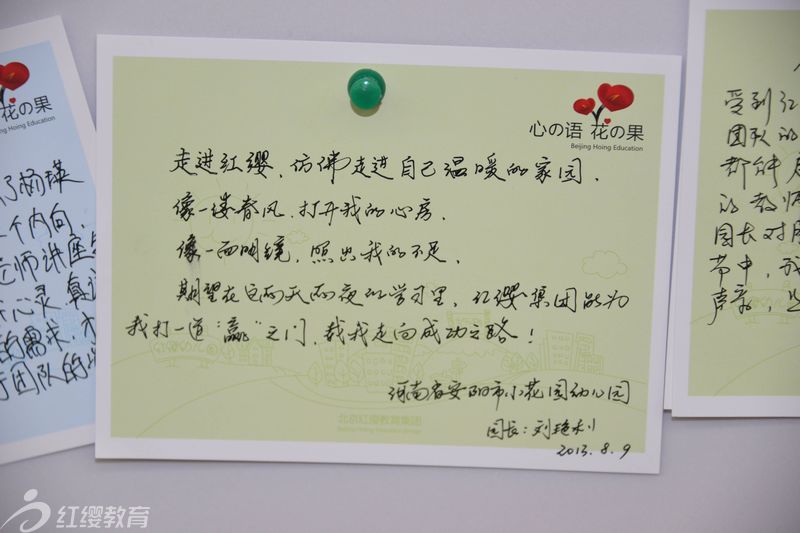 花の果
杨瑛
个内向,
师讲座
心灵
的需求,
团队的
心の语 花の果
Beijing Hoing Education
走进红缨,仿佛走进自己温暖的家园,
像一缕春风,打开我的心房,
像一面明镜,照出我的不足,
期望在这两天两夜的学习里,红缨集团能为
我打一道“赢”之门,载我走向成功之路!
河南省安阳市小花园幼儿园
园长:刘艳利
2013.8.9
北京红缨教育集团
受到红
团队的
都能
的教师
园长对
带中,我
声亲,
红缨教育